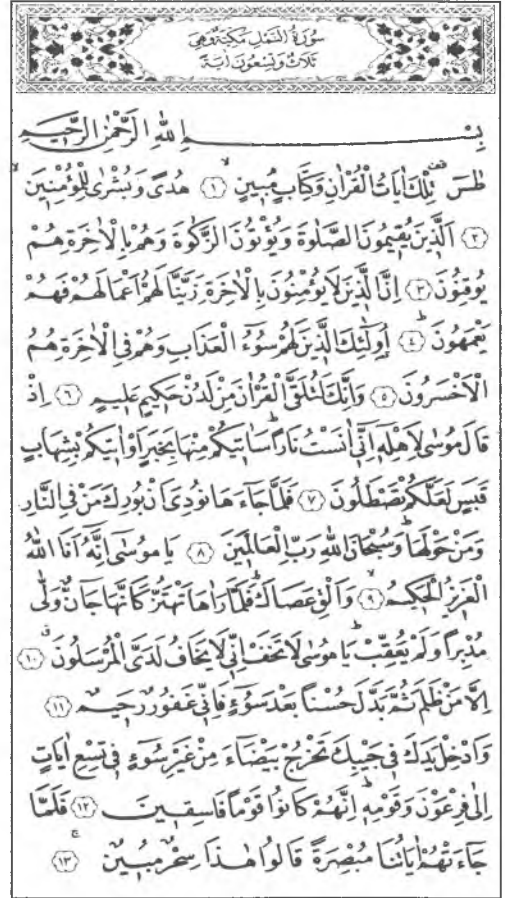 سُورَةُ النَّمْلِ مَكِّيَّةٌ وَهِيَ
ثَلَاثٌ وَتِسْعُونَ اٰيَةً
بِسْمِ اللّٰهِ الرَّحْمٰنِ الرَّحٖيمِ
طٰسٓ تِلْكَ اٰيَاتُ الْقُرْاٰنِ وَكِتَابٍ مُبٖينٍ ﴿١﴾ هُدًى وَبُشْرٰى لِلْمُؤْمِنٖينَ
﴿٢﴾ اَلَّذٖينَ يُقٖيمُونَ الصَّلٰوةَ وَيُؤْتُونَ الزَّكٰوةَ وَهُمْ بِالْاٰخِرَةِ هُمْ
يُوقِنُونَ ﴿٣﴾ اِنَّ الَّذٖينَ لَا يُؤْمِنُونَ بِالْاٰخِرَةِ زَيَّنَّا لَهُمْ اَعْمَالَهُمْ فَهُمْ
يَعْمَهُونَ ﴿٤﴾ اُولٰٓئِكَ الَّذٖينَ لَهُمْ سُٓوءُ الْعَذَابِ وَهُمْ فِي الْاٰخِرَةِ هُمُ
الْاَخْسَرُونَ ﴿٥﴾ وَاِنَّكَ لَتُلَقَّى الْقُرْاٰنَ مِنْ لَدُنْ حَكٖيمٍ عَلٖيمٍ ﴿٦﴾ اِذْ
قَالَ مُوسٰى لِاَهْلِهٖٓ اِنّٖٓي اٰنَسْتُ نَارًا سَاٰتٖيكُمْ مِنْهَا بِخَبَرٍ اَوْ اٰتٖيكُمْ بِشِهَابٍ
قَبَسٍ لَعَلَّكُمْ تَصْطَلُونَ ﴿٧﴾ فَلَمَّا جَٓاءَهَا نُودِيَ اَنْ بُورِكَ مَنْ فِي النَّارِ
وَمَنْ حَوْلَهَا وَسُبْحَانَ اللّٰهِ رَبِّ الْعَالَمٖينَ ﴿٨﴾ يَا مُوسٰٓى اِنَّهُٓ اَنَا اللّٰهُ
الْعَزٖيزُ الْحَكٖيمُ ﴿٩﴾ وَاَلْقِ عَصَاكَ فَلَمَّا رَاٰهَا تَهْتَزُّ كَاَنَّهَا جَٓانٌّ وَلّٰى
مُدْبِرًا وَلَمْ يُعَقِّبْ يَا مُوسٰى لَا تَخَفْ اِنّٖي لَا يَخَافُ لَدَيَّ الْمُرْسَلُونَ ﴿١٠﴾
اِلَّا مَنْ ظَلَمَ ثُمَّ بَدَّلَ حُسْنًا بَعْدَ سُٓوءٍ فَاِنّٖي غَفُورٌ رَحٖيمٌ ﴿١١﴾
وَاَدْخِلْ يَدَكَ فٖي جَيْبِكَ تَخْرُجْ بَيْضَٓاءَ مِنْ غَيْرِ سُٓوءٍ فٖي تِسْعِ اٰيَاتٍ
اِلٰى فِرْعَوْنَ وَقَوْمِهٖ اِنَّهُمْ كَانُوا قَوْمًا فَاسِقٖينَ ﴿١٢﴾ فَلَمَّا
جَٓاءَتْهُمْ اٰيَاتُنَا مُبْصِرَةً قَالُوا هٰذَا سِحْرٌ مُبٖينٌ ﴿١٣﴾